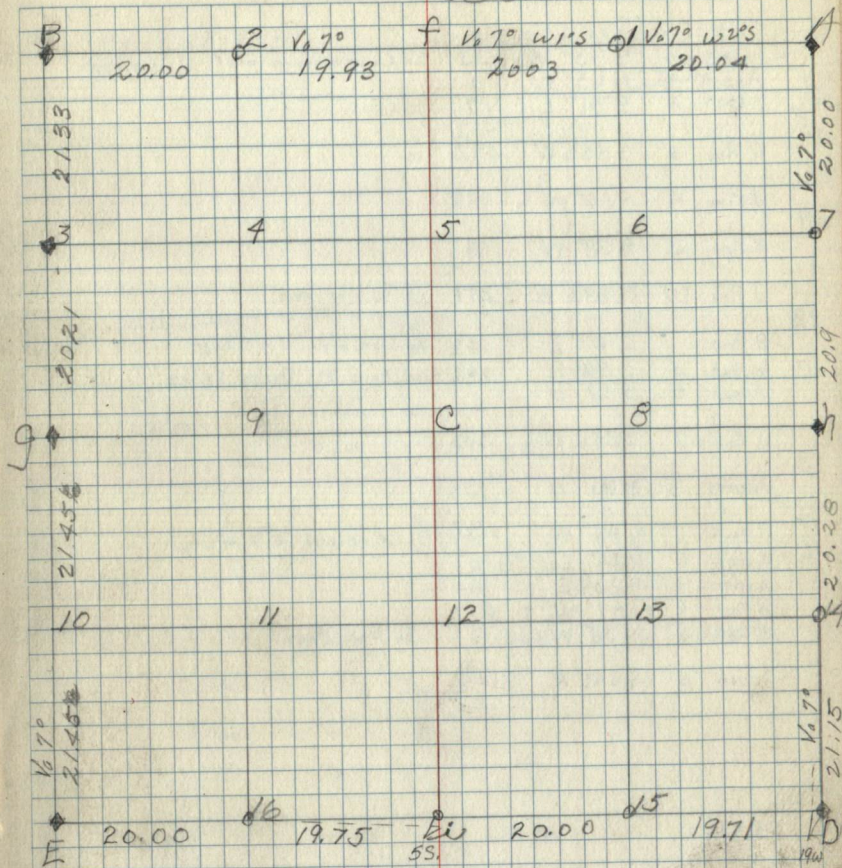 B 2 Va 7° f Va 7° W1°S 1 Va 7° W2°S A
20.00 19.93 2003 20.04
21.33
Va 7° 20.00
3 4 5 6 7
20.21
20.9
g 9 C 8 h
21.45
20.28
10 11 12 13 14
Va 7° 21.45
Va 7° 21.15
E 16 i 15 D
20.00 19.75 20.00 19.71
5S. 19W